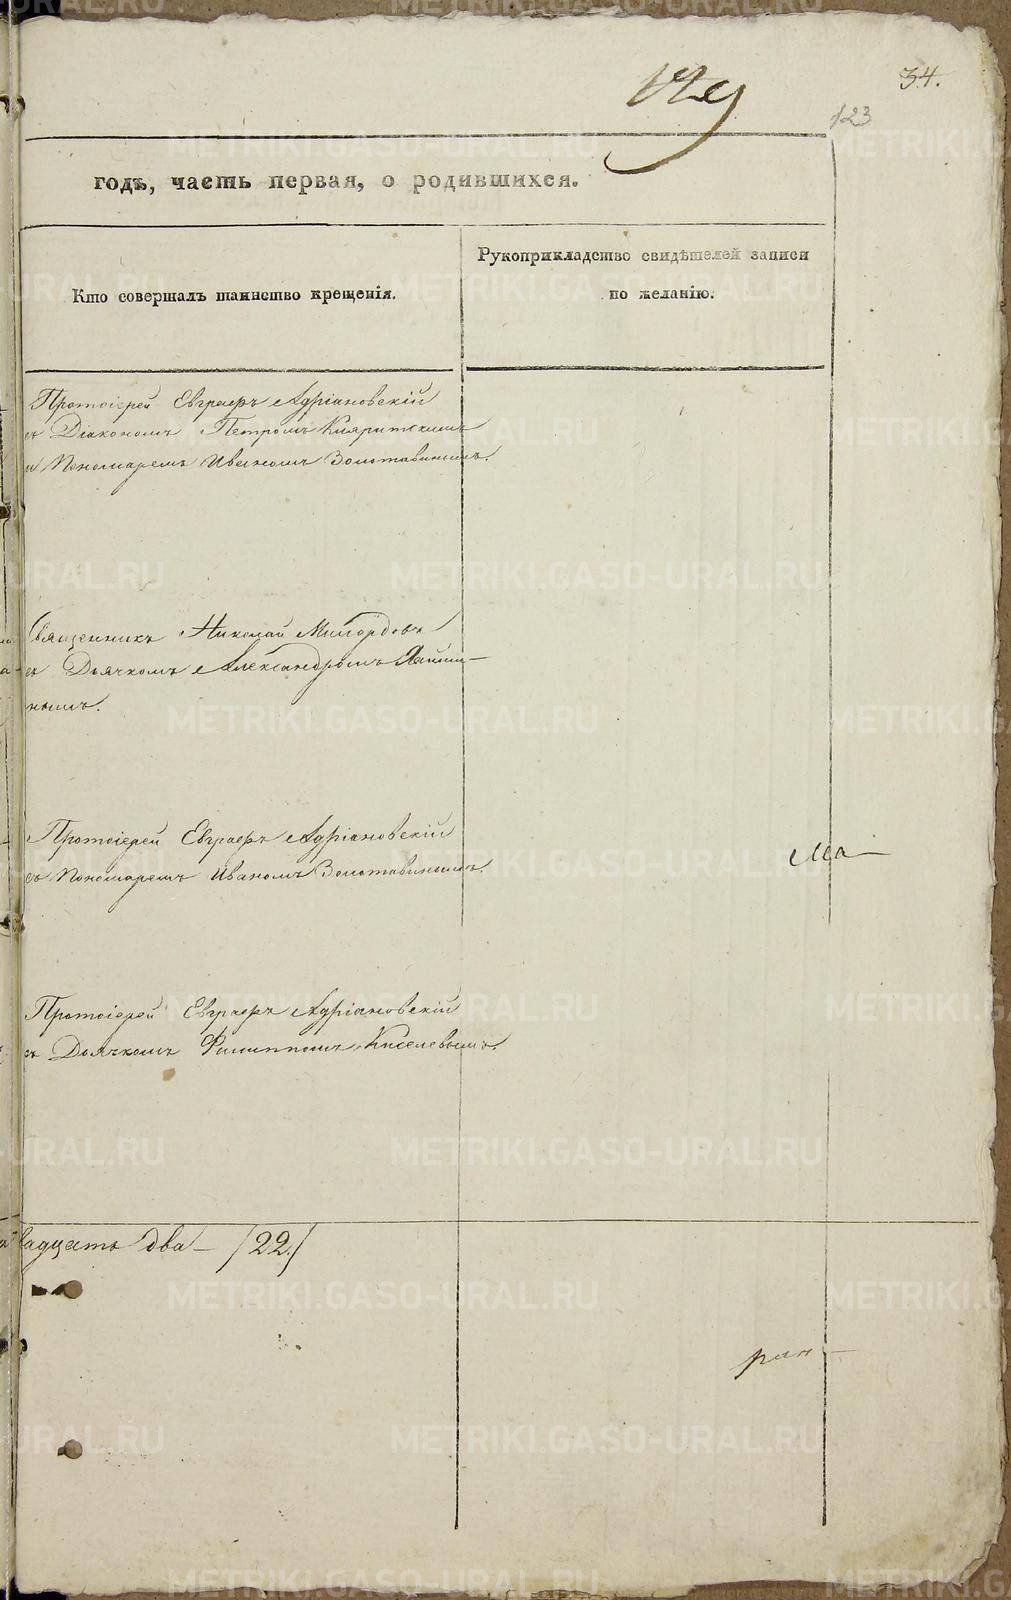 34.
123
годѣ, часть первая, о родившихся.
Кто совершалъ таинство крещенія.
Рукоприкладство свидѣтелей записи
по желанію.
Протоіерей Евграфъ Адріановскій
съ Діакономъ Петромъ
и Пономаремъ Иваномъ Золотавинымъ.
Священникъ Николай Милордовъ
съ Дьячкомъ Александромъ
нымъ.
Протоіерей Евграфъ Адріановскій
съ Пономаремъ Иваномъ Золотавинымъ.
Ма-
Протоіерей Евграфъ Адріановскій
съ Дьячкомъ Филиппомъ Киселевымъ.
вадцать два - /22./
METRIKI.GASO-URAL.RU